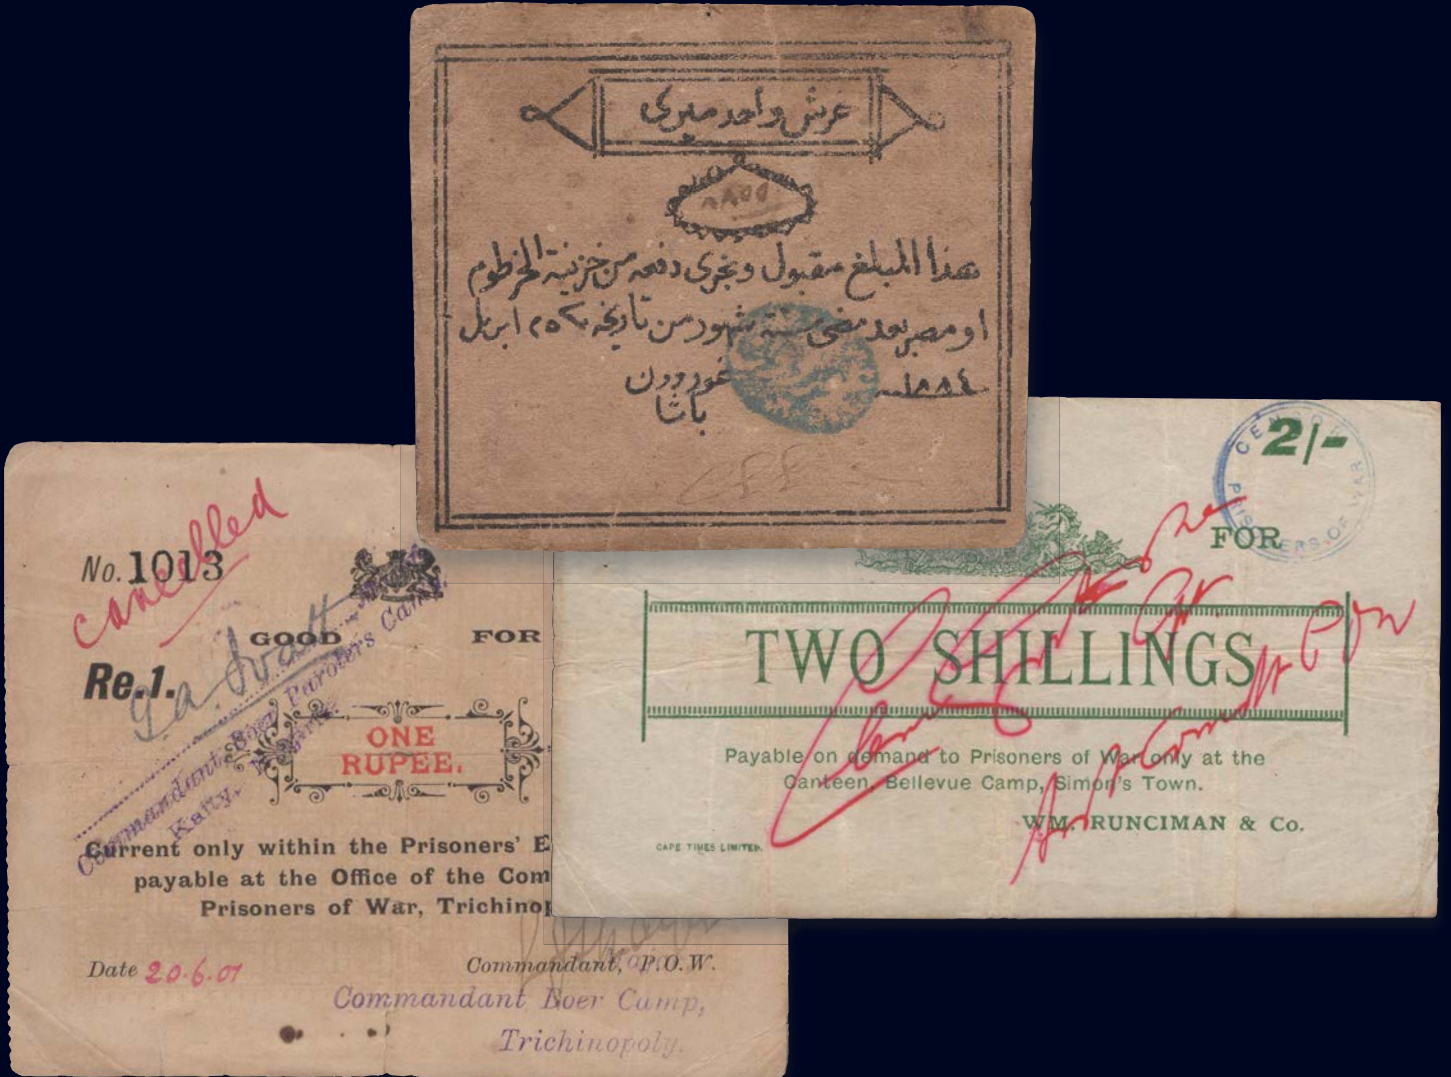 غرش واحد ميرى
هذا المبلغ مقبول ويجرى دفعه من خزنية الخرطوم
او مصر بعد مضى ستة شهور من تاريخه ٢٥ ابريل
١٨٨٤
غوردون
باشا
No. 1013
cancelled
GOOD FOR
Re. 1.
ONE
RUPEE.
Commandant, Boer Parolers Camp,
Kaity,
Current only within the Prisoners' E
payable at the Office of the Com
Prisoners of War, Trichinop
Date 20.6.01
Commandant, P.O.W.
Commandant Boer Camp,
Trichinopoly.
2/-
CENSOR
PRISONERS OF WAR
FOR
TWO SHILLINGS
Payable on demand to Prisoners of War only at the
Canteen, Bellevue Camp, Simon's Town.
WM. RUNCIMAN & Co.
CAPE TIMES LIMITED.